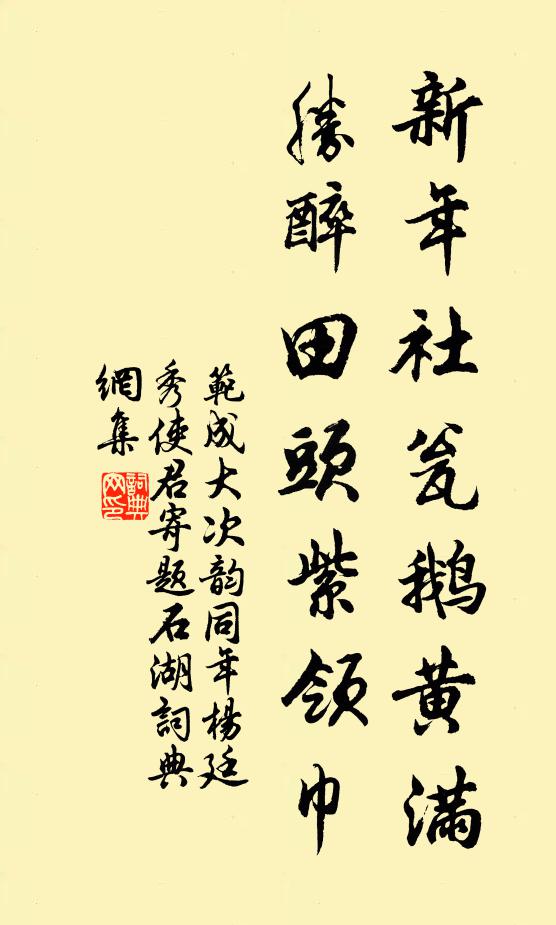 新年社瓮鹅黄满
勝醉田頭紫领巾
範成大次韵同年楊廷
秀使君寄题石湖詞典
網集
詞典
网印